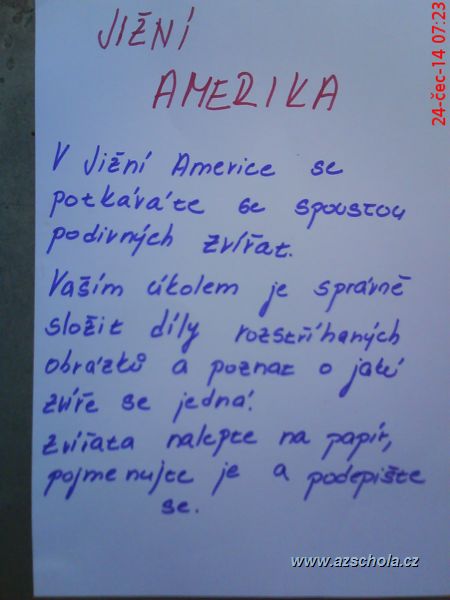 JIŽNÍ
AMERIKA
24-čec-14 07:23
V Jižní Americe se
potkáváte se spoustou
podivných zvířat.
Vaším úkolem je správně
složit díly rozstříhaných
obrázků a poznat o jaké
zvíře se jedná.
Zvířata nalepte na papír,
pojmenujte je a podepište
se.
www.azschola.cz